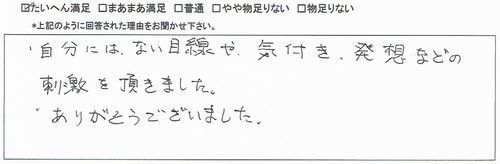 ☑たいへん満足 □まあまあ満足 □普通 □やや物足りない □物足りない
*上記のように回答された理由をお聞かせ下さい。
・自分には、ない目線や、気付き、発想などの
刺激を頂きました。
・ありがとうございました。